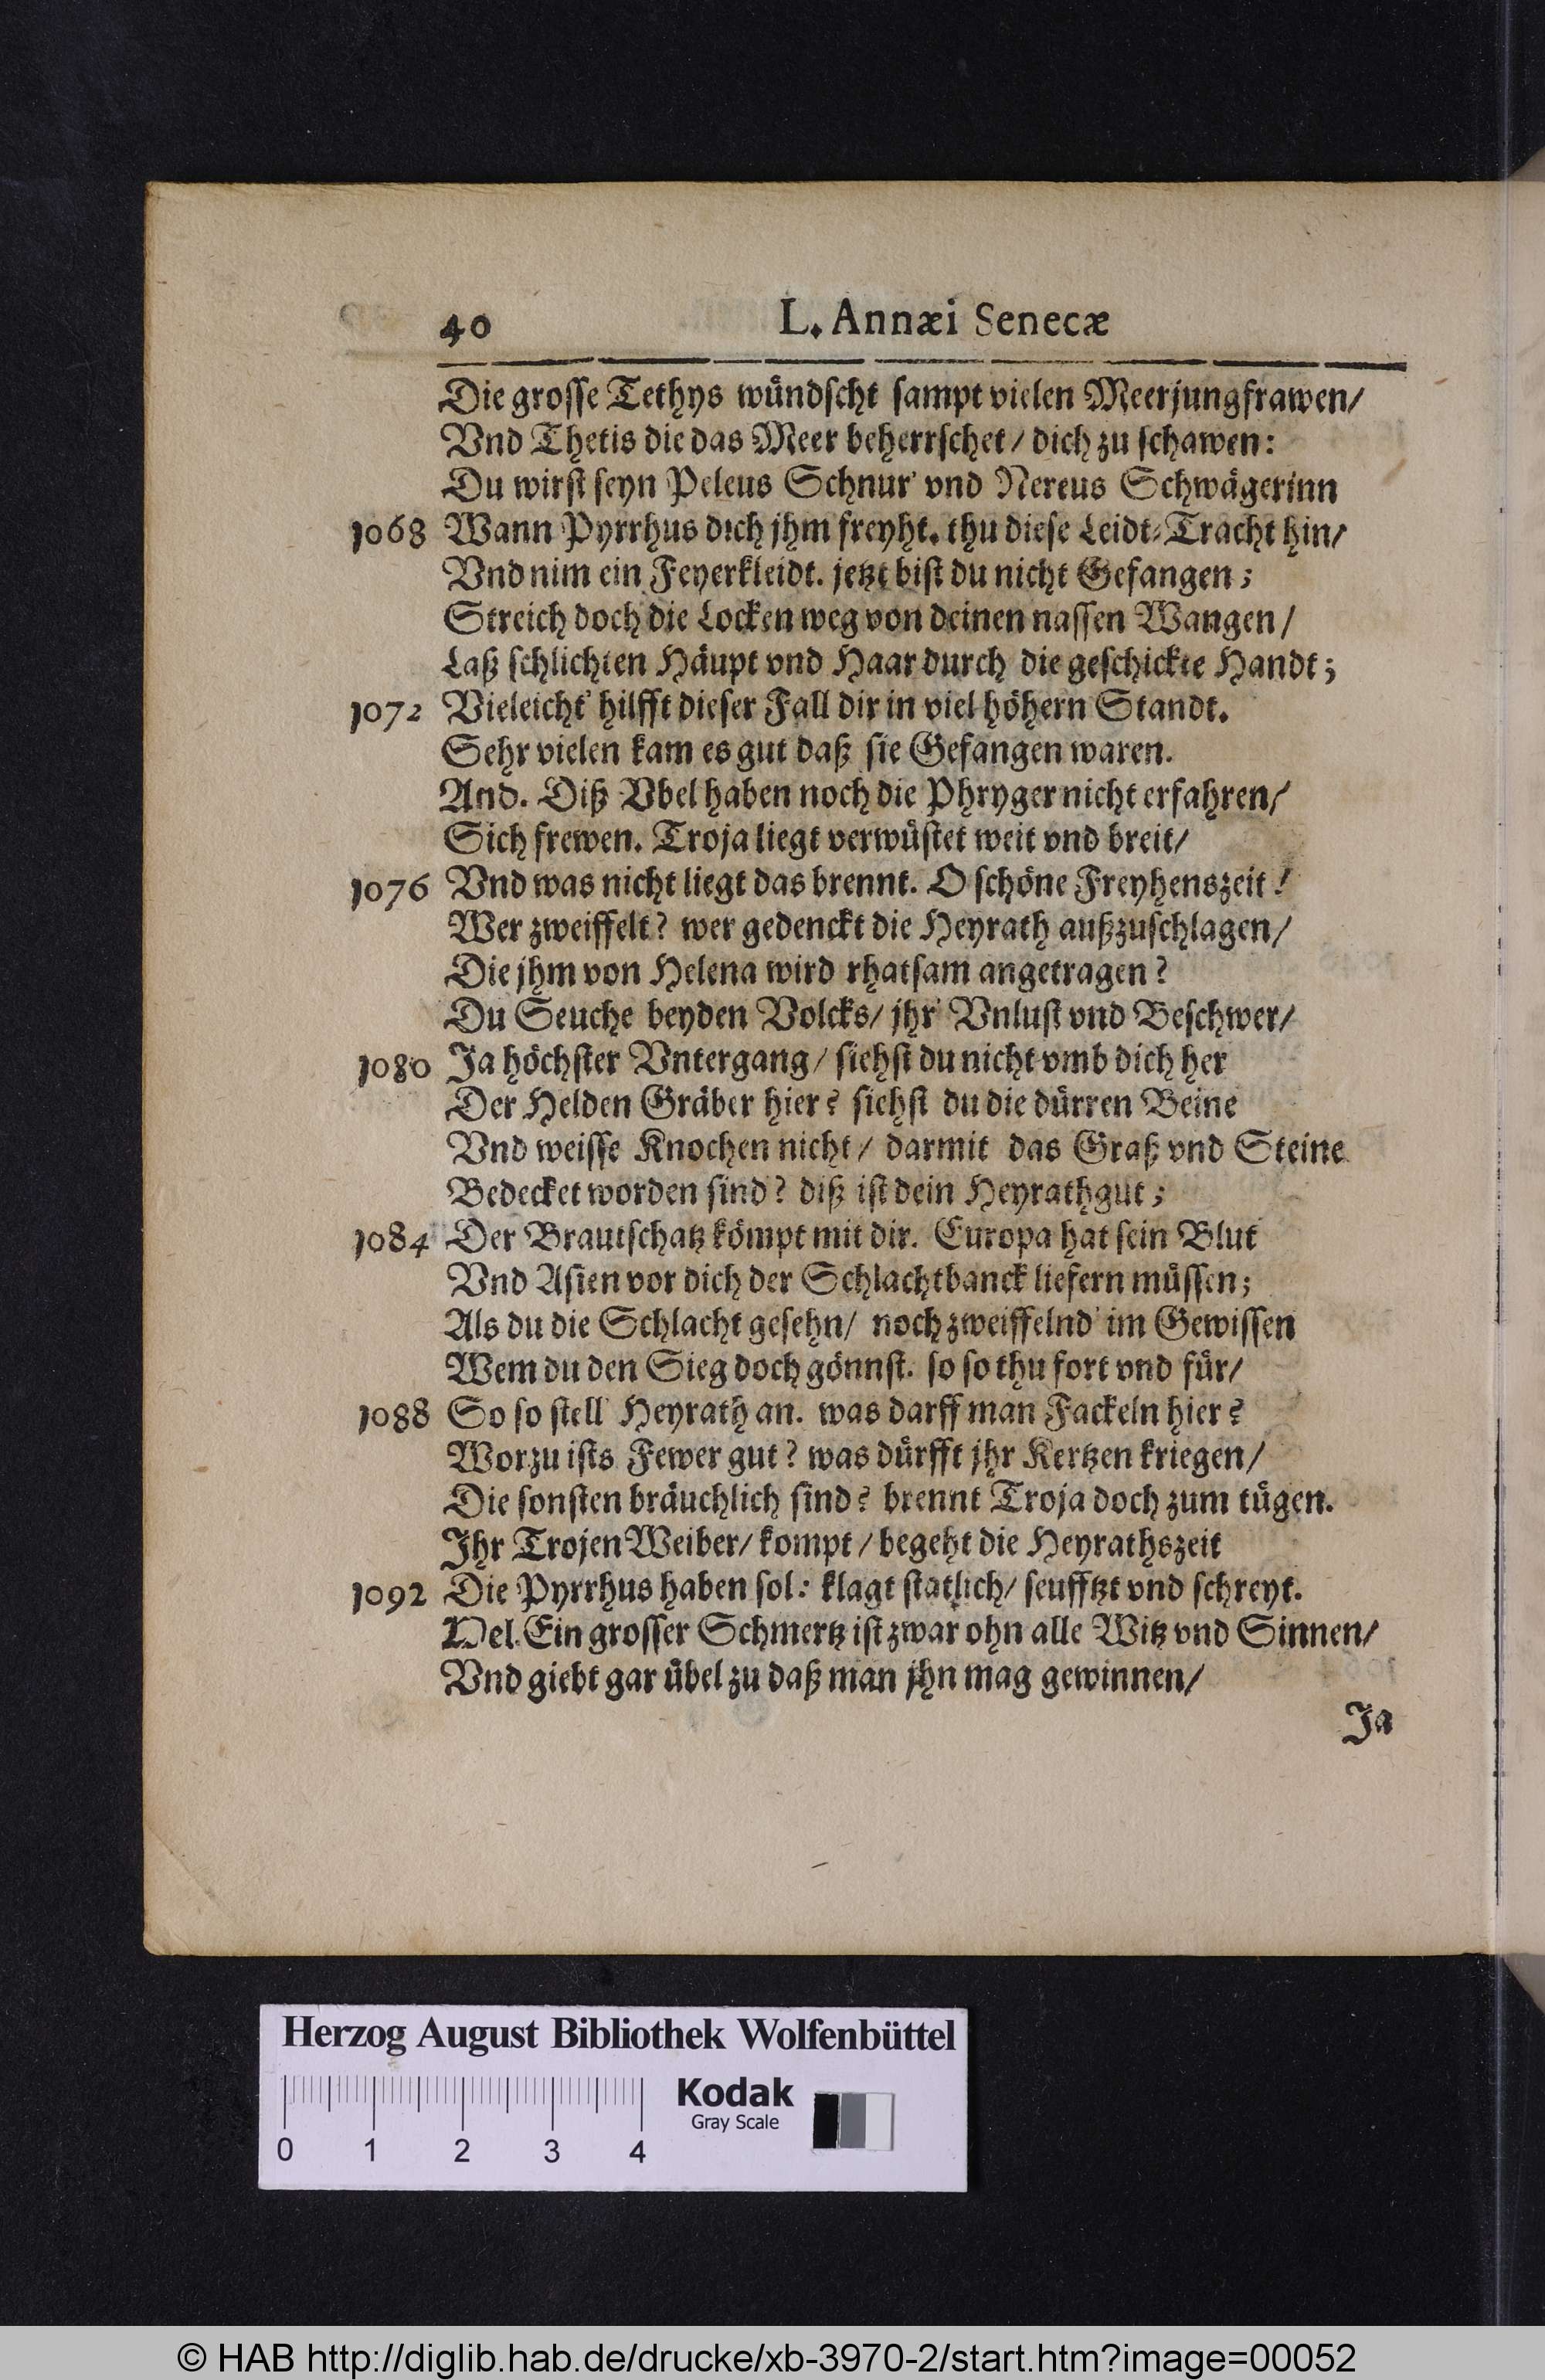 40 L. Annæi Senecæ
Die grosse Tethys wündscht sampt vielen Meerjungfrawen/
Vnd Thetis die das Meer beherrschet/ dich zu schawen:
Du wirst seyn Peleus Schnur' vnd Nereus Schwägerinn
1068 Wann Pyrrhus dich jhm freyht. thu diese Leidt-Tracht hin/
Vnd nim ein Feyerkleidt. jetzt bist du nicht Gefangen;
Streich doch die Locken weg von deinen nassen Wangen/
Laß schlichten Häupt vnd Haar durch die geschickte Handt;
1072 Vieleicht' hilfft dieser Fall dir in viel höhern Standt.
Sehr vielen kam es gut daß sie Gefangen waren.
And. Diß Vbel haben noch die Phryger nicht erfahren/
Sich frewen. Troja liegt verwüstet weit vnd breit/
1076 Vnd was nicht liegt das brennt. O schöne Freyhenszeit!
Wer zweiffelt? wer gedenckt die Heyrath außzuschlagen/
Die jhm von Helena wird rhatsam angetragen?
Du Seuche beyden Volcks/ jhr' Vnlust vnd Beschwer/
1080 Ja höchster Vntergang/ siehst du nicht vmb dich her
Der Helden Gräber hier? siehst du die dürren Beine
Vnd weisse Knochen nicht/ darmit das Graß vnd Steine
Bedecket worden sind? diß ist dein Heyrathgut;
1084 Der Brautschatz kömpt mit dir. Europa hat sein Blut
Vnd Asien vor dich der Schlachtbanck liefern müssen;
Als du die Schlacht gesehn/ noch zweiffelnd' im Gewissen
Wem du den Sieg doch gönnst. so so thu fort vnd für/
1088 So so stell' Heyrath an. was darff man Fackeln hier?
Worzu ists Fewer gut? was dürfft jhr Kertzen kriegen/
Die sonsten bräuchlich sind? brennt Troja doch zum tügen.
Ihr Trojen Weiber/ kompt/ begeht die Heyrathszeit
1092 Die Pyrrhus haben sol: klagt statlich/ seufftzt vnd schreyt.
Hel. Ein grosser Schmertz ist zwar ohn alle Witz vnd Sinnen/
Vnd giebt gar übel zu daß man jhn mag gewinnen/
Ja
Herzog August Bibliothek Wolfenbüttel
Kodak
Gray Scale
0 1 2 3 4
© HAB http://diglib.hab.de/drucke/xb-3970-2/start.htm?image=00052